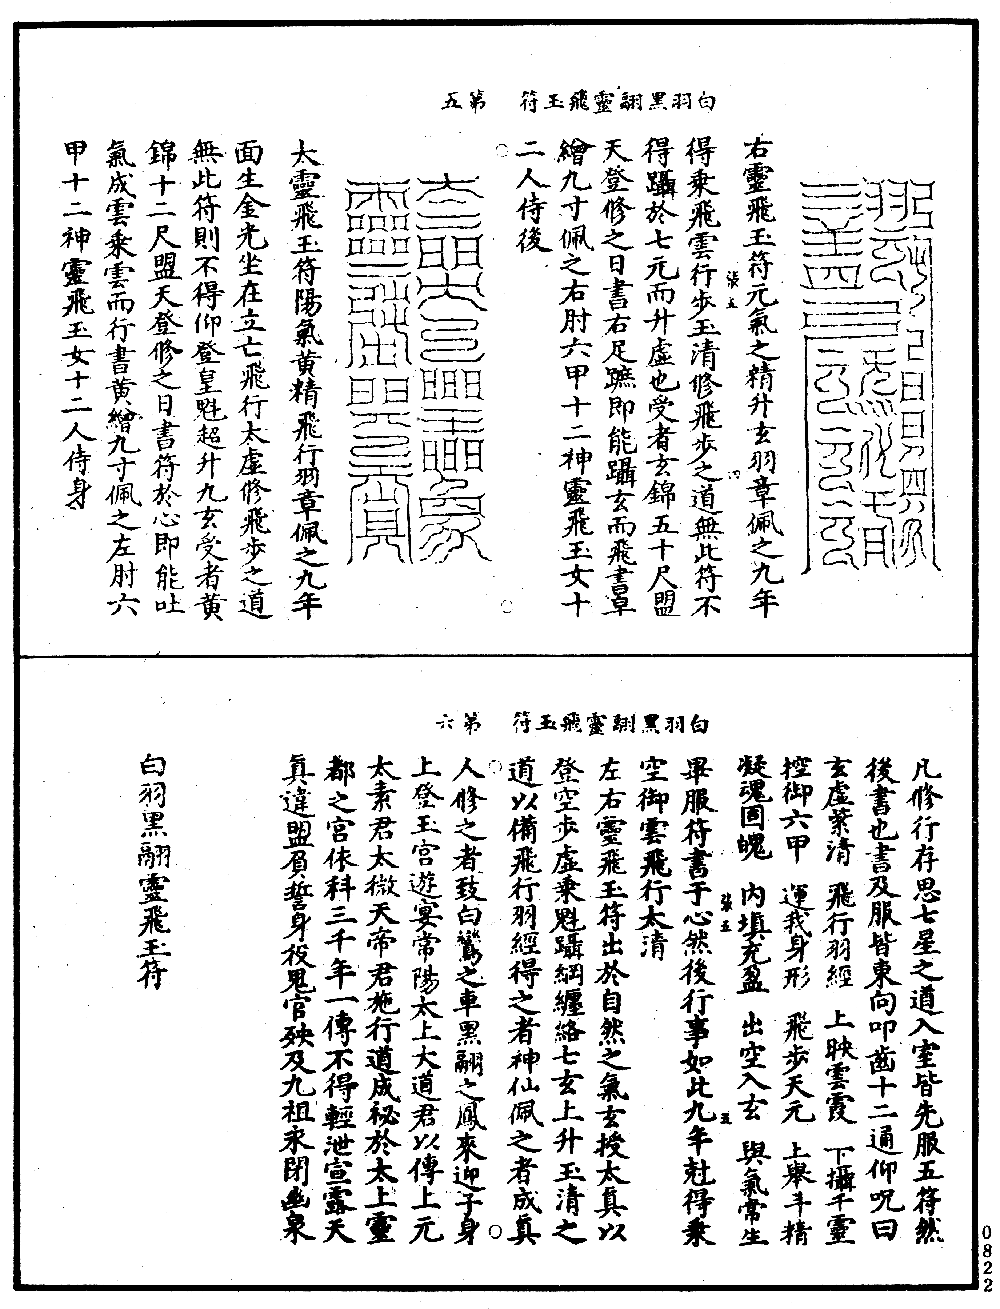 白羽黑翮靈飛玉符　第五
右靈飛玉符元氣之精升玄羽章佩之九年
得乘飛雲行步玉清修飛步之道無此符不
得躡於七元而升虛也受者玄錦五十尺盟
天登修之日書右足蹠即能躡玄而飛書皁
繒九寸佩之右肘六甲十二神靈飛玉女十
二人侍後
太靈飛玉符陽氣黃精飛行羽章佩之九年
面生金光坐在立亡飛行太虛修飛步之道
無此符則不得仰登皇魁超升九玄受者黃
錦十二尺盟天登修之日書符於心即能吐
氣成雲乘雲而行書黃繒九寸佩之左肘六
甲十二神靈飛玉女十二人侍身
白羽黑翮靈飛玉符　第六
凡修行存思七星之道入室皆先服五符然
後書也書及服皆東向叩齒十二通仰呪曰
玄虛紫清　飛行羽經　上映雲霞　下攝千靈
控御六甲　運我身形　飛步天元　上舉斗精
凝魂固魄　內填充盈　出空入玄　與氣常生
畢服符書于心然後行事如此九年剋得乘
空御雲飛行太清
左右靈飛玉符出於自然之氣玄授太真以
登空步虛乘魁躡綱纏絡七玄上升玉清之
道以備飛行羽經得之者神仙佩之者成真
人修之者致白鸞之車黑翮之鳳來迎子身
上登玉宮遊宴常陽太上大道君以傳上元
太素君太微天帝君施行道成祕於太上靈
都之宮依科三千年一傳不得輕泄宣露天
真違盟負誓身役鬼官殃及九祖永閉幽泉
白羽黑翮靈飛玉符
張五
張五
0822